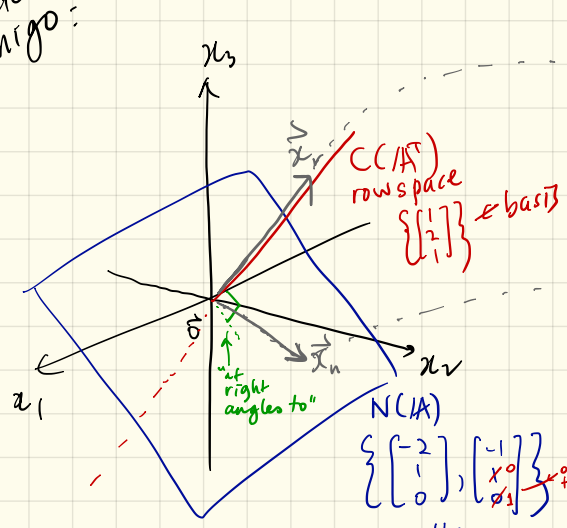 nigo:
x₃
x⃗ᵣ
C(Aᵀ)
rowspace
{[1 2 1]} ← basis
0⃗
x⃗ₙ
x₂
x₁
"at
right
angles to"
N(A)
{[-2 1 0], [-1 0 1]}